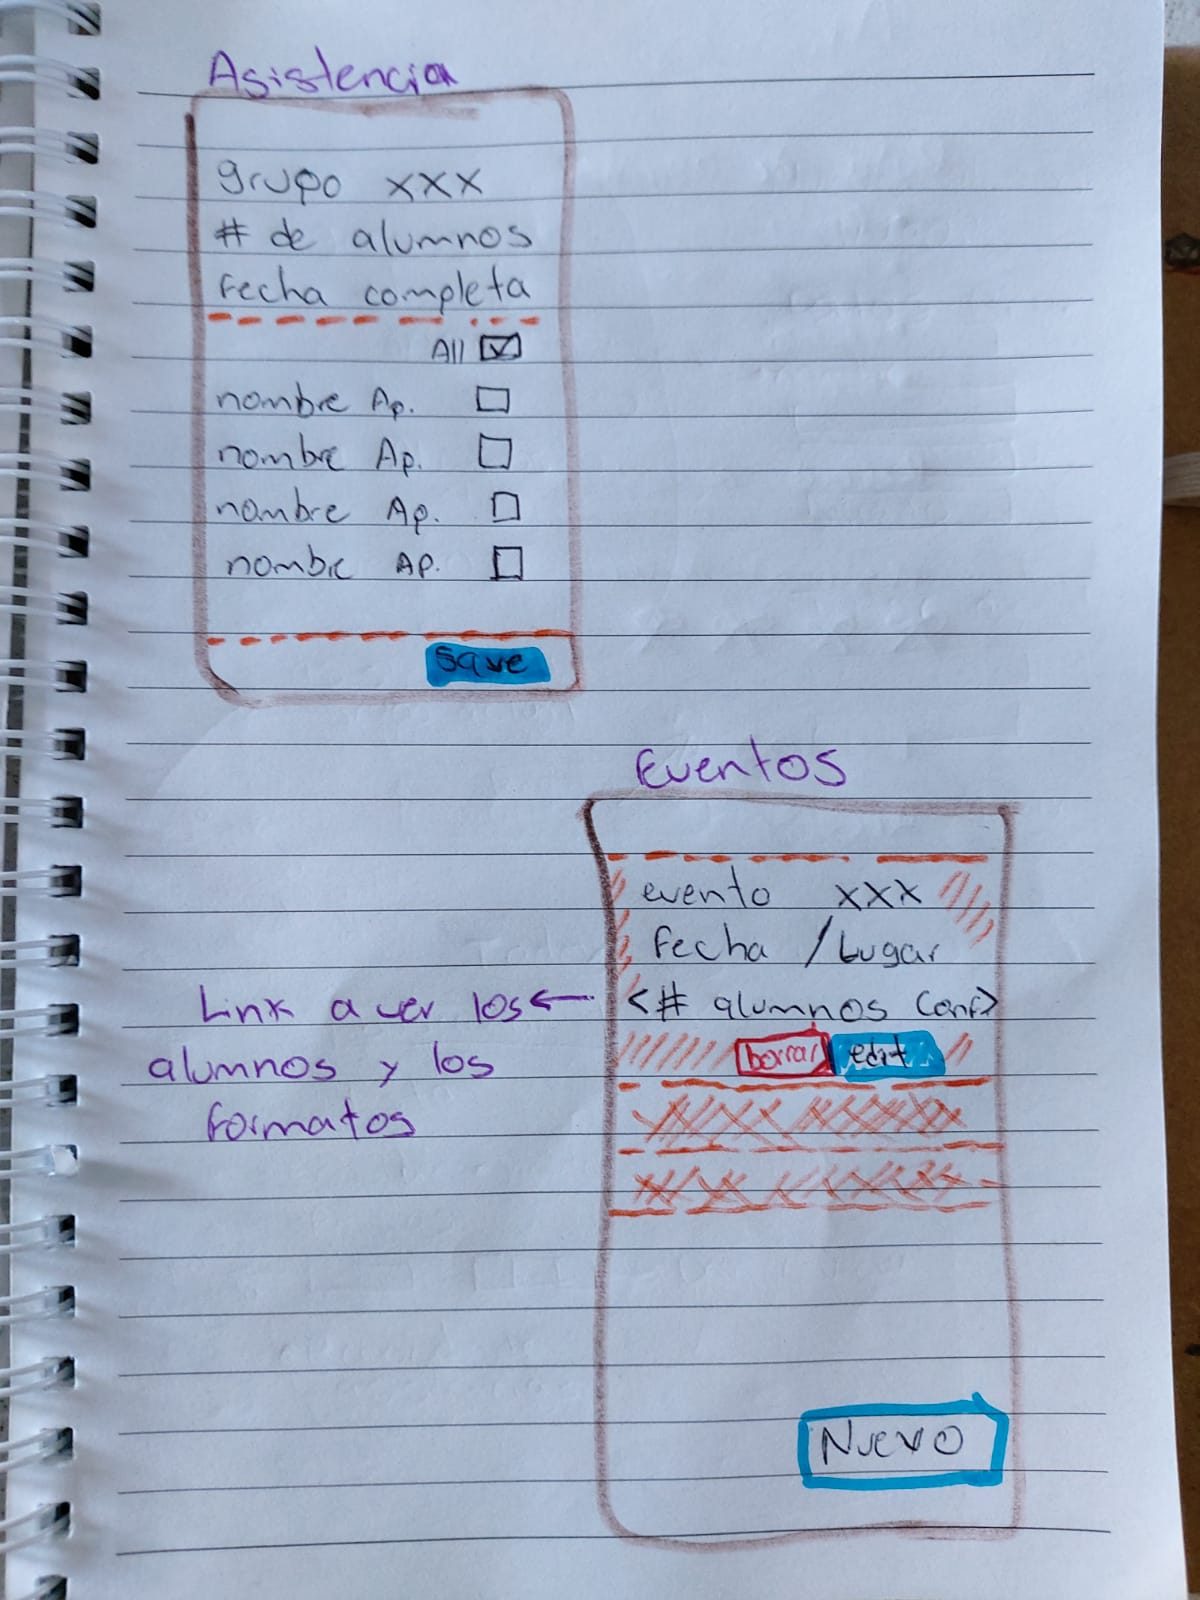 Asistencia
grupo xxx
# de alumnos
Fecha completa
All
nombre Ap.
nombre Ap.
nombre Ap.
nombre Ap.
Save
Eventos
evento xxx
Fecha / Lugar
<# alumnos Conf>
borrar edit
Link a ver los ←
alumnos y los
formatos
Nuevo